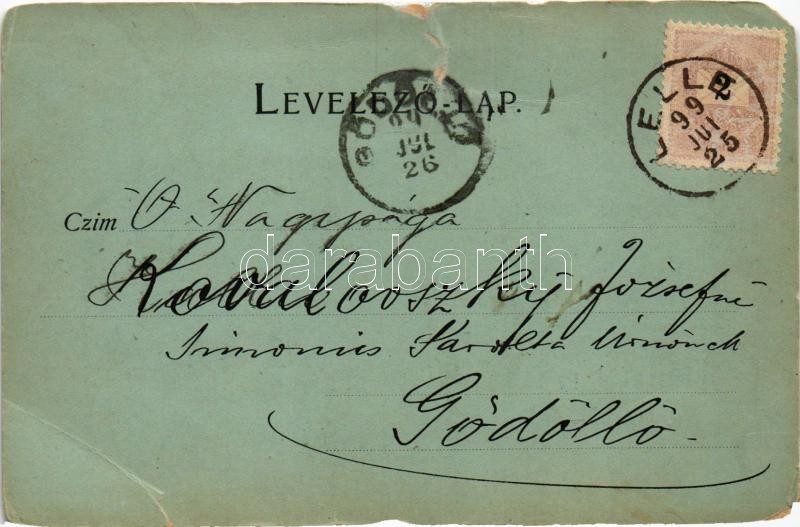 LEVELEZŐ-LAP.
GÖDÖLLŐ
99
JUL
26
LELLE
99
JUL
25
Czim Ő Nagysága
Kovalovszky Józsefné
Simonics Karolta Úrnőnek
Gödöllő
darabanth